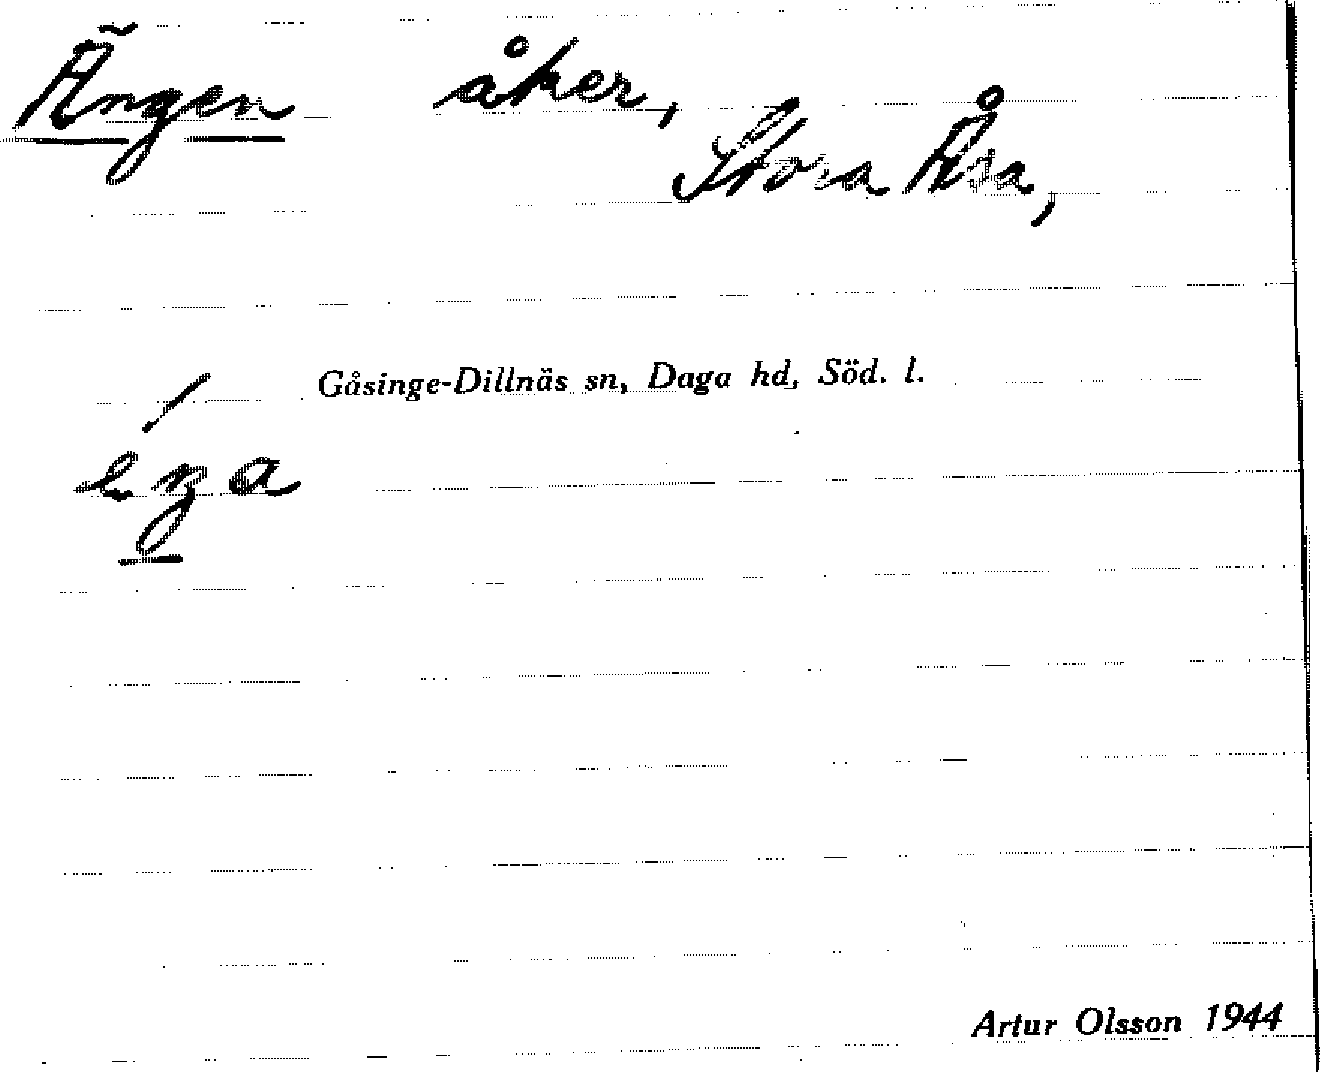 Ängen åker,
Stora Åsa,
Gåsinge-Dillnäs sn, Daga hd, Söd. l.
Artur Olsson 1944